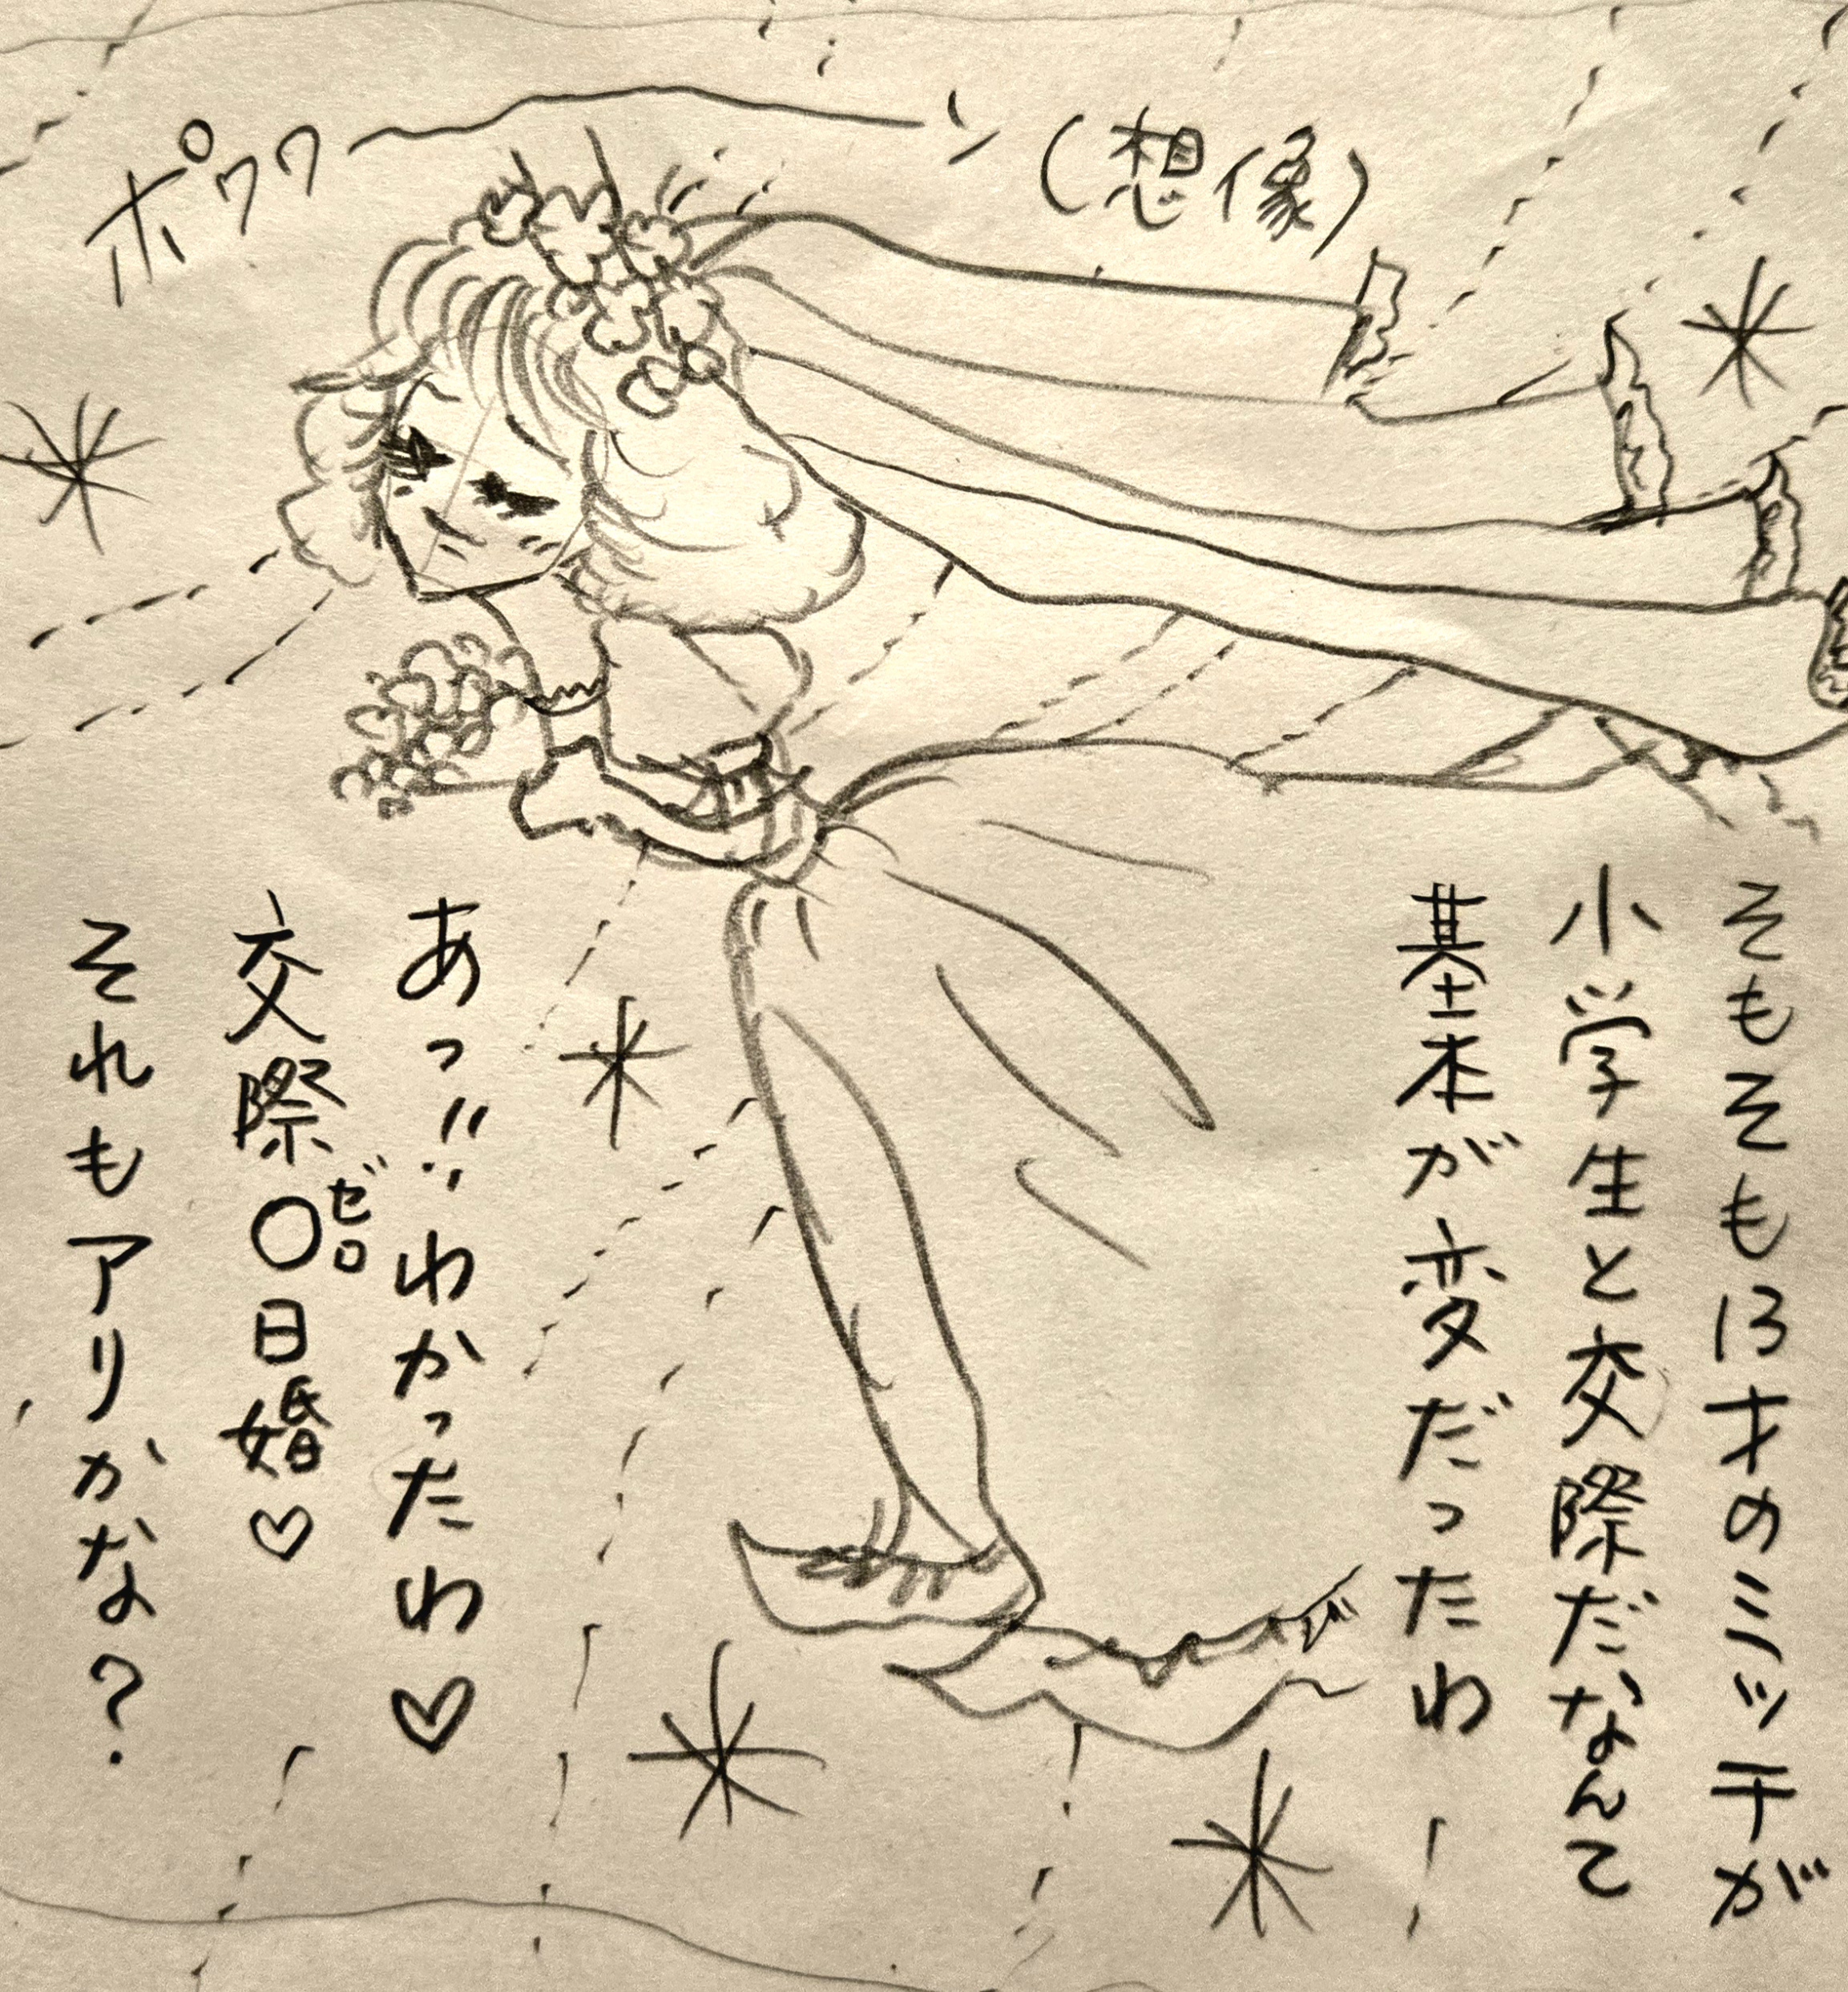 ポワワーン(想像)
そもそも13才のミッチが
小学生と交際だなんて
基本が変だったわ
あっ!!わかったわ♡
交際〇日婚♡
ゼロ
それもアリかな?